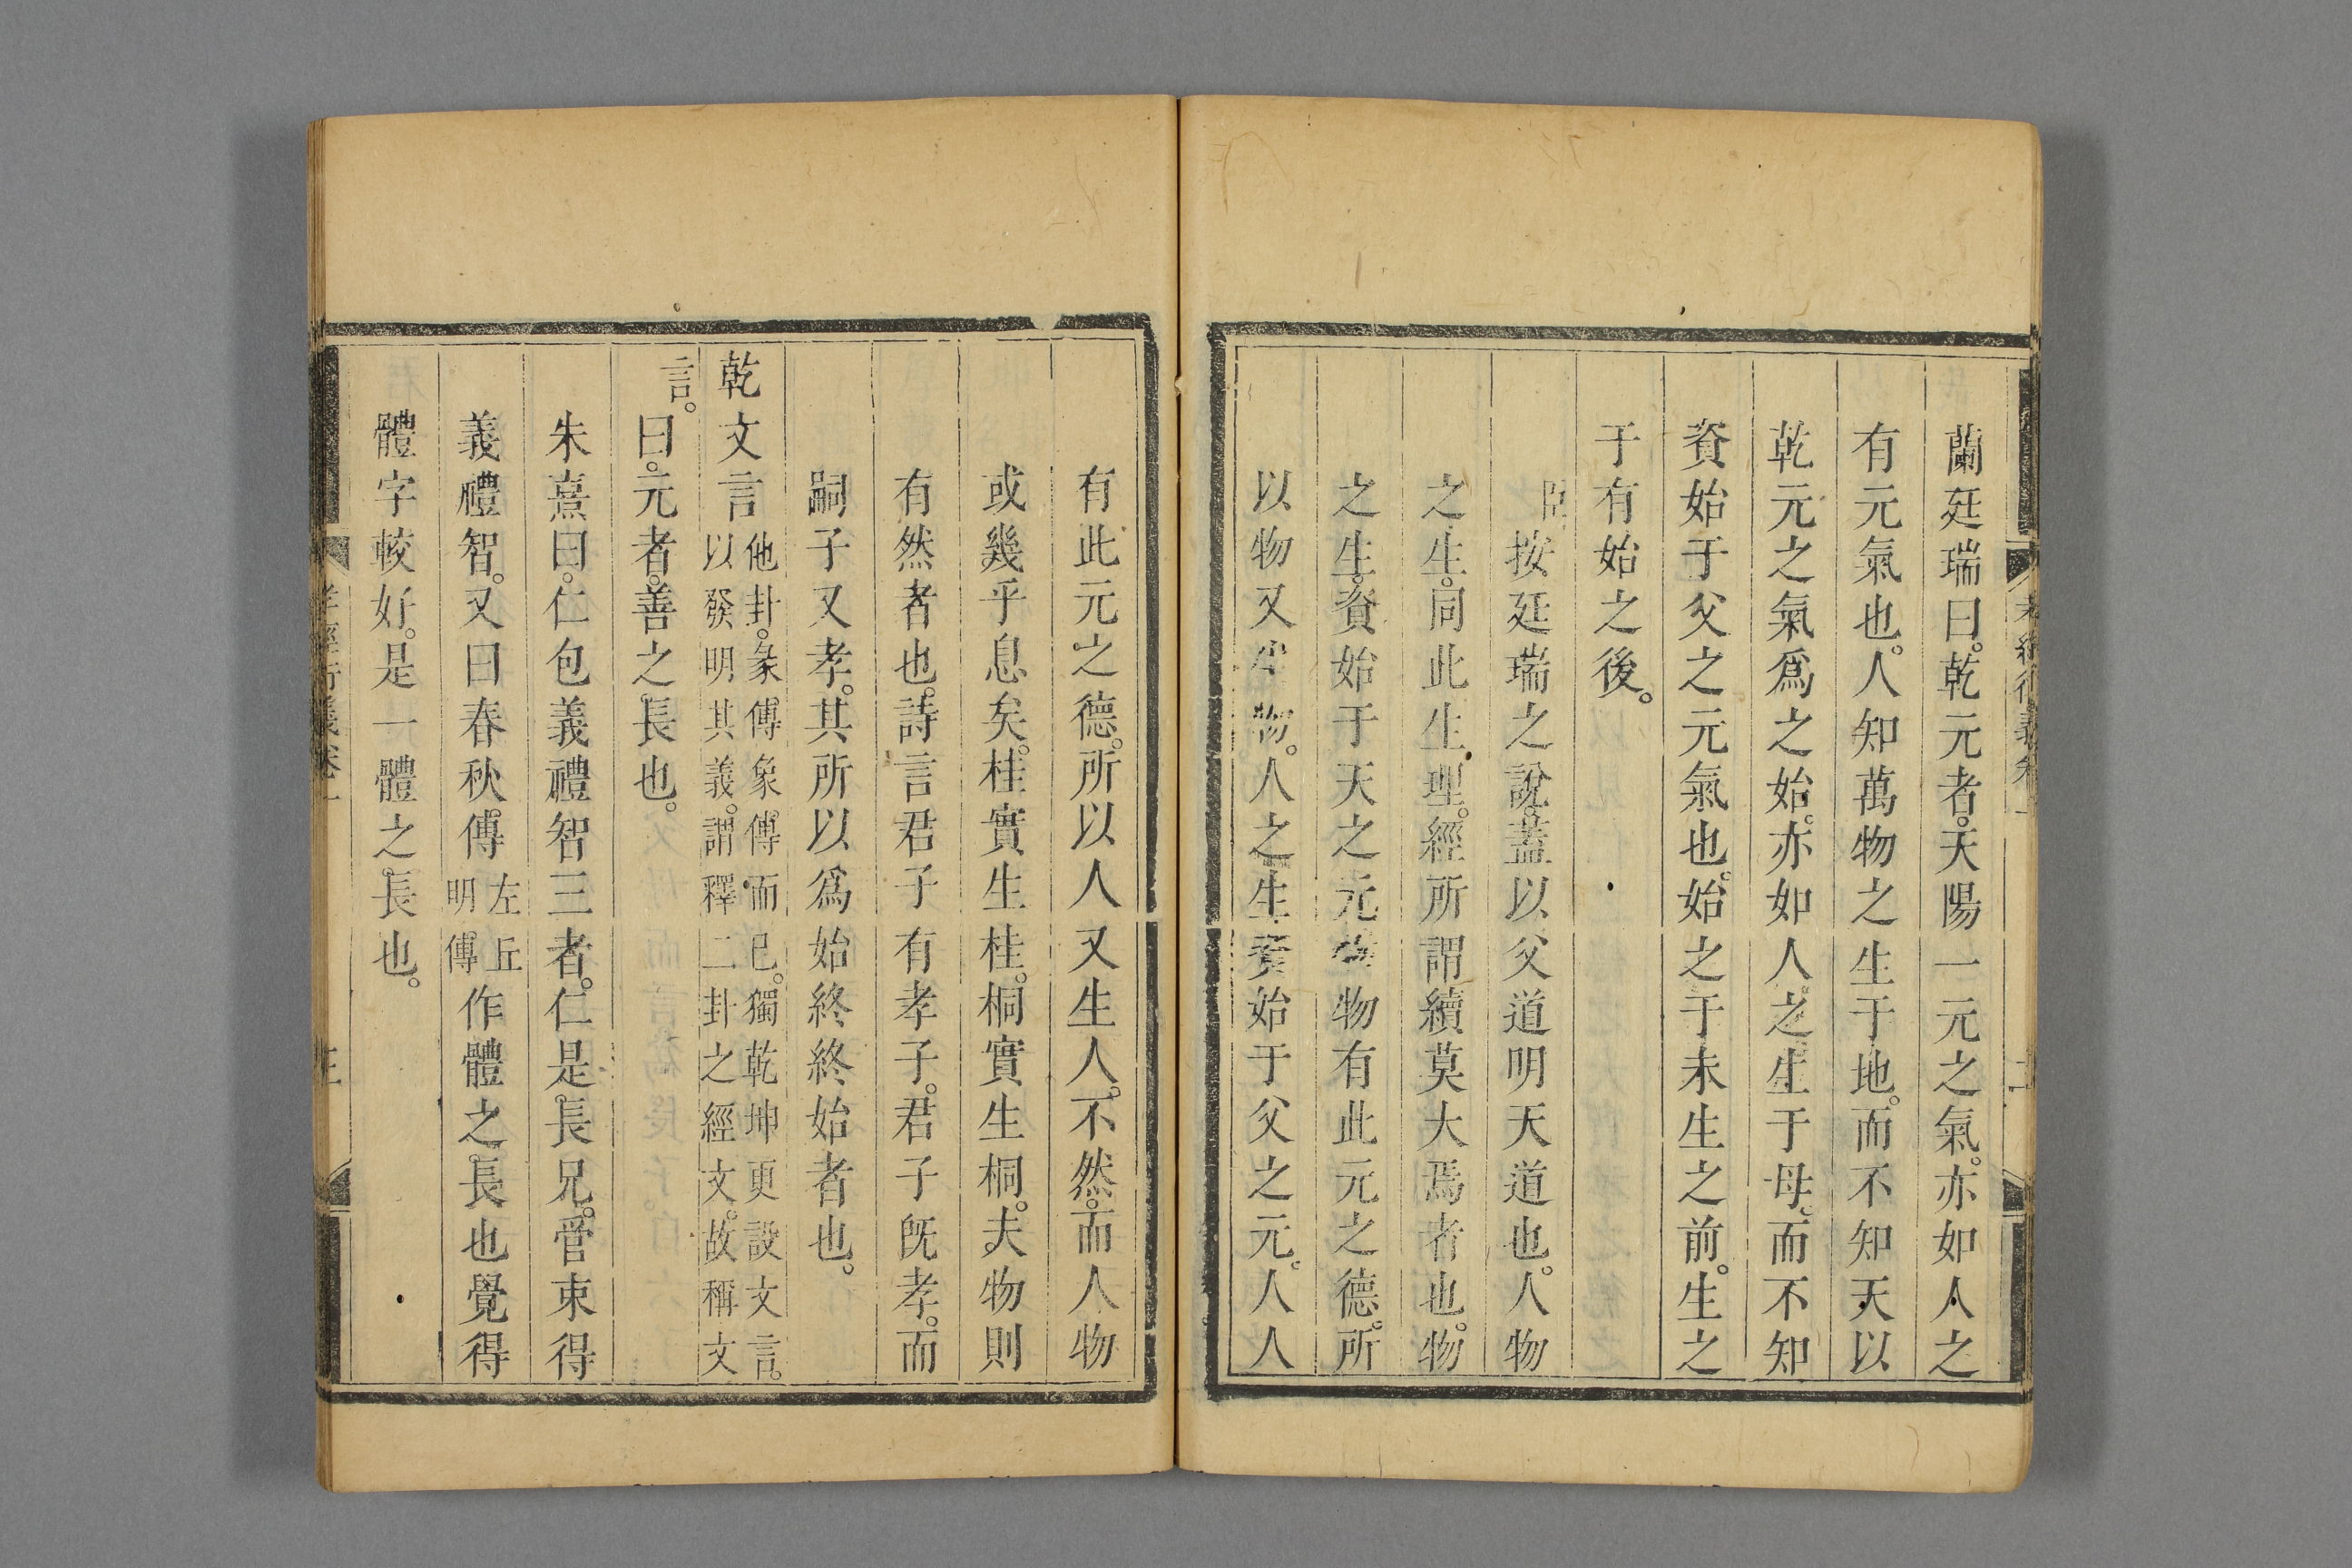 孝經衍義卷一
二
蘭廷瑞曰。乾元者。天陽一元之氣。亦如人之
有元氣也。人知萬物之生于地。而不知天以
乾元之氣爲之始。亦如人之生于母。而不知
資始于父之元氣也。始之于未生之前。生之
于有始之後。
臣按廷瑞之說。蓋以父道明天道也。人物
之生。同此生理。經所謂續莫大焉者也。物
之生。資始于天之元 物有此元之德。所
以物又生物。人之生資始于父之元。人人
有此元之德。所以人又生人。不然。而人物
或幾乎息矣。桂實生桂。桐實生桐。夫物則
有然者也。詩言君子有孝子。君子旣孝。而
嗣子又孝。其所以爲始終終始者也。
乾文言他卦。彖傳象傳而已。獨乾坤更設文言。
以發明其義。謂釋二卦之經文。故稱文
言。曰。元者。善之長也。
朱熹曰。仁包義禮智三者。仁是長兄。管束得
義禮智。又曰春秋傳左丘
明傳作體之長也覺得
體字較好。是一體之長也。
孝經衍義卷一
三